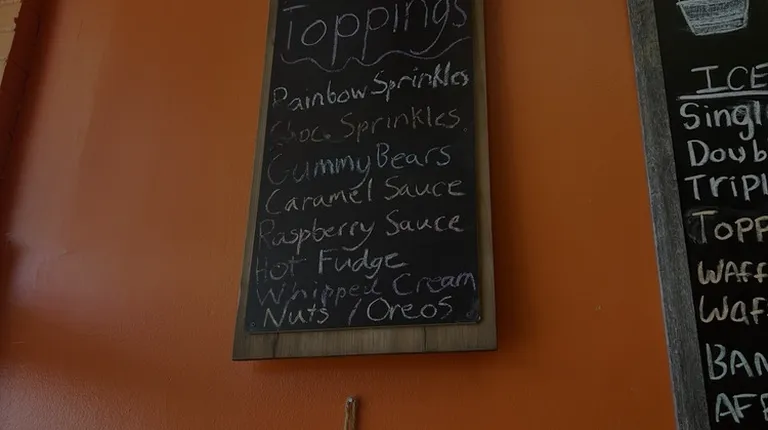 Toppings
Rainbow Sprinkles
Choc Sprinkles
Gummy Bears
Caramel Sauce
Raspberry Sauce
Hot Fudge
Whipped Cream
Nuts / Oreos
ICE
Singl
Doub
Tripl
Topp
WAFF
Waf
BAN
AFF